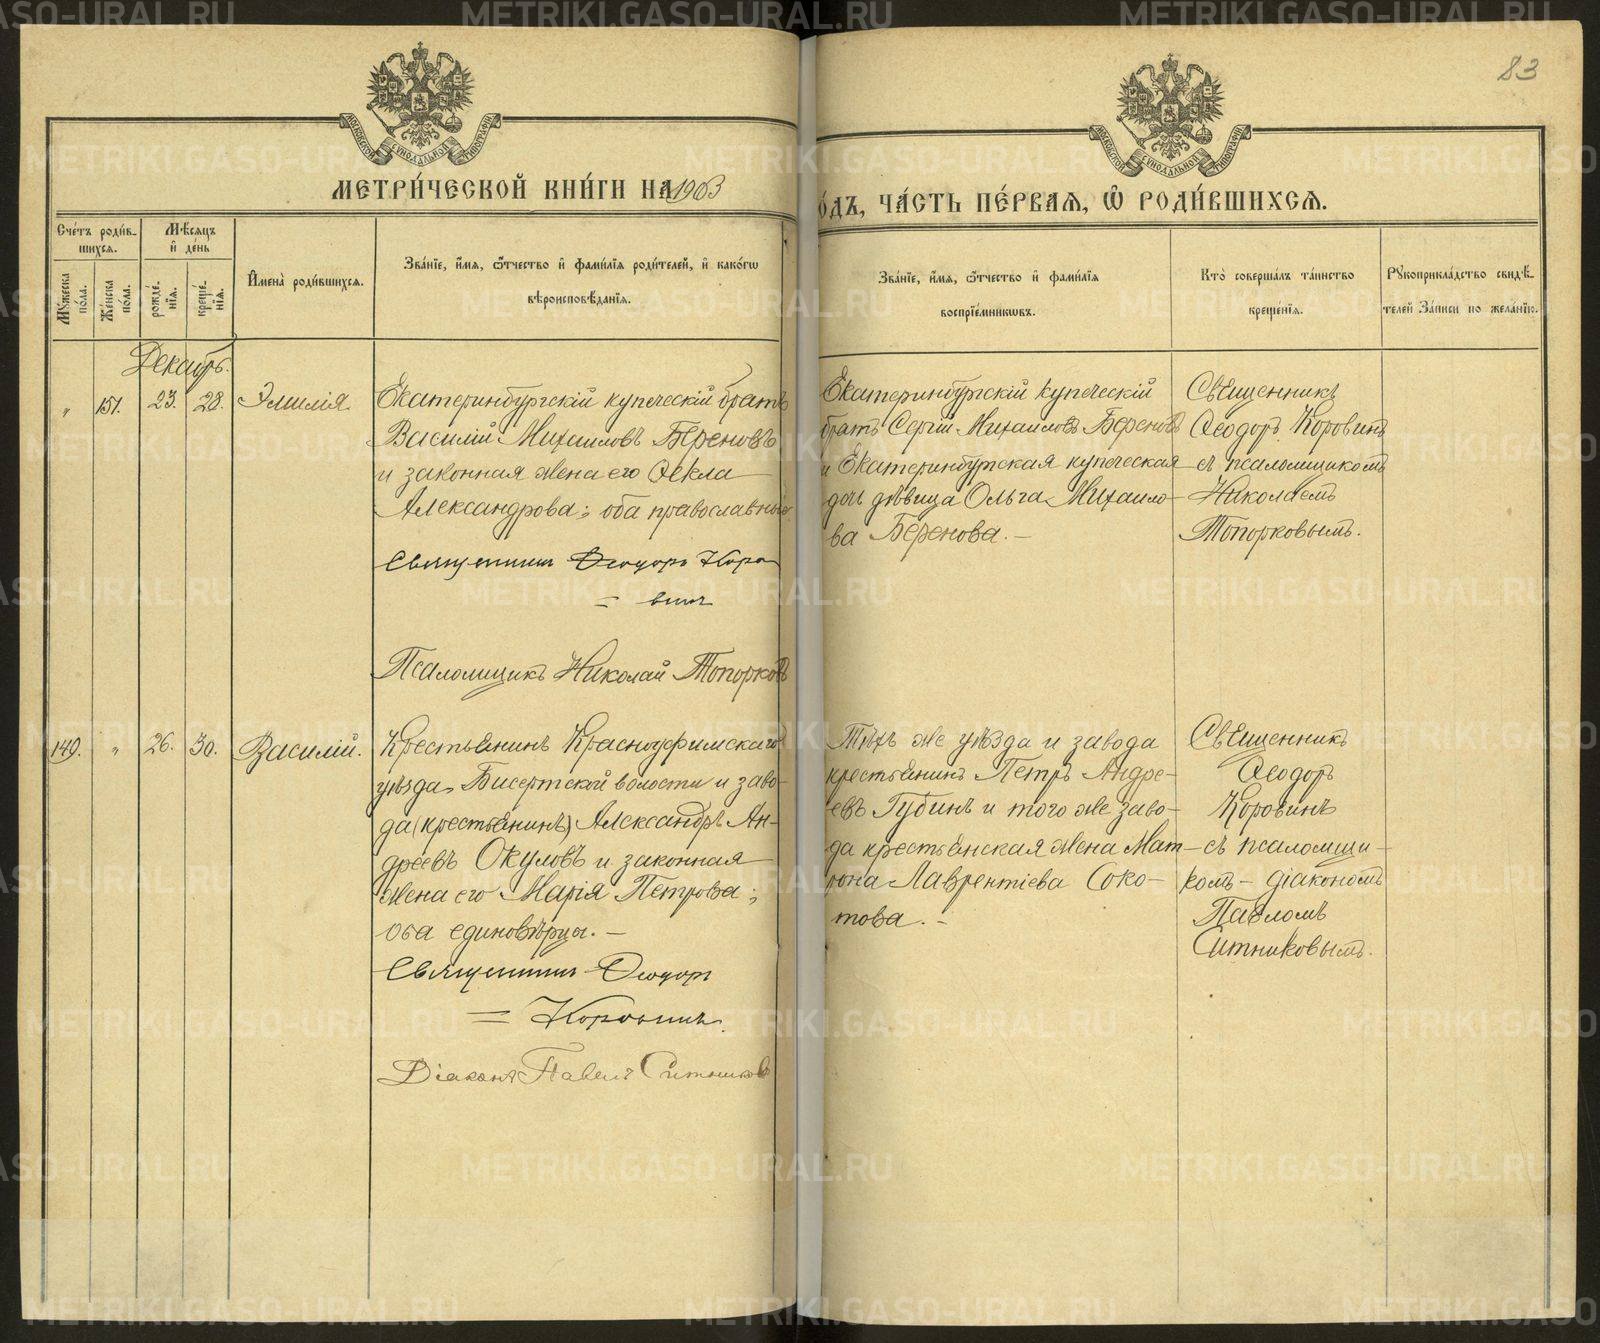 83
МОСКОВСКОЙ СѴНОДАЛЬНОЙ ТИПОГРАФІИ
МОСКОВСКОЙ СѴНОДАЛЬНОЙ ТИПОГРАФІИ
МЕТРИ́ЧЕСКОЙ КНИ́ГИ НА 1903
ÓДЪ, ЧА́СТЬ ПЕ́РВАѦ, Ѡ РОДИ́ВШИХСѦ.
Сче́тъ роди́в-
шихсѧ.
Мꙋ́жеска по́ла.
Же́нска по́ла.
Мѣ́сѧцъ
и҆ де́нь
рожде́нїѧ.
креще́нїѧ.
И҆мена̀ роди́вшихсѧ.
Зва́нїе, и҆́мѧ, ѻ҆́тчество и҆ фами́лїѧ роди́телей, и҆ како́гѡ
вѣроисповѣ́данїѧ.
Зва́нїе, и҆́мѧ, ѻ҆́тчество и҆ фами́лїѧ
воспрїе́мникѡвъ.
Кто̀ соверша́лъ та́инство
креще́нїѧ.
Рꙋкоприкла́дство свидѣ́-
телей за́писи по жела́нїю.
Декабрь.
" 151. 23. 28. Эмилія
Екатеринбургскій купеческій братъ
Василій Михаиловъ Береновъ
и законная жена его Ѳекла
Александрова; оба православные
Священникъ Ѳеодоръ Коро
= винъ
Псаломщикъ Николай Топорковъ
Екатеринбургскій купеческій
братъ Сергій Михаиловъ Береновъ
и Екатеринбургская купеческая
дочь дѣвица Ольга Михаило-
ва Беренова. -
Священникъ
Ѳеодоръ Коровинъ
съ псаломщикомъ
Николаемъ
Топорковымъ.
149. " 26. 30. Василій.
Крестьянинъ Красноуфимскаго
уѣзда, Бисертской волости и заво-
да (крестьянинъ) Александръ Ан-
дреевъ Окуловъ и законная
жена его Марія Петрова;
оба единовѣрцы. -
Священникъ Ѳеодоръ
= Коровинъ
Діаконъ Павелъ Ситниковъ
Тѣхъ же уѣзда и завода
крестьянинъ Петръ Андре-
евъ Губинъ и того же заво-
да крестьянская жена Мат-
рона Лаврентіева Соко-
това. -
Священникъ
Ѳеодоръ
Коровинъ
съ псаломщи-
комъ - діакономъ
Павломъ
Ситниковымъ.
METRIKI.GASO-URAL.RU